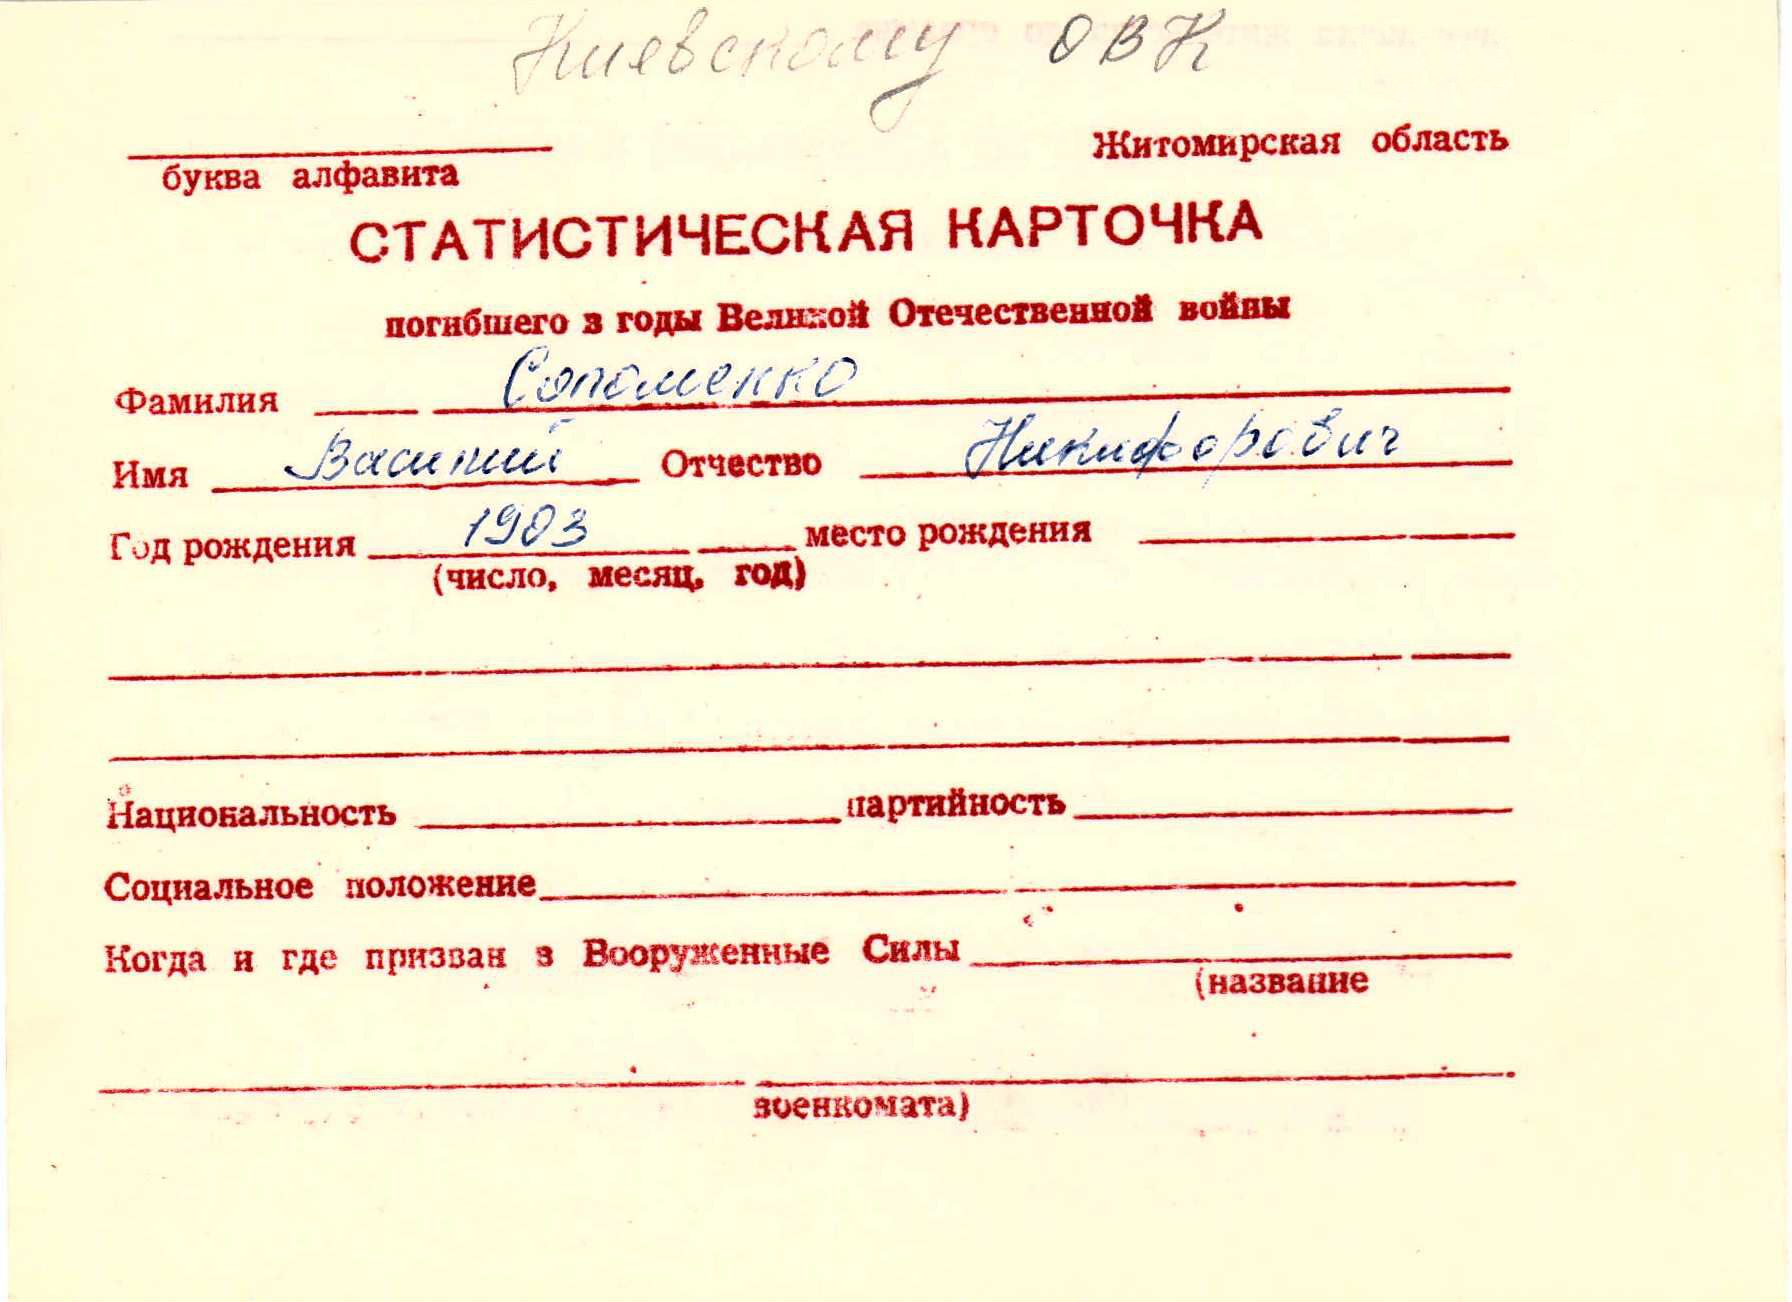 Киевскому ОВК
Житомирская область
буква алфавита
СТАТИСТИЧЕСКАЯ КАРТОЧКА
погибшего в годы Великой Отечественной войны
Фамилия Соломенко
Имя Василий Отчество Никифорович
Год рождения 1903 место рождения
(число, месяц, год)
Национальность партийность
Социальное положение
Когда и где призван в Вооруженные Силы
(название
военкомата)